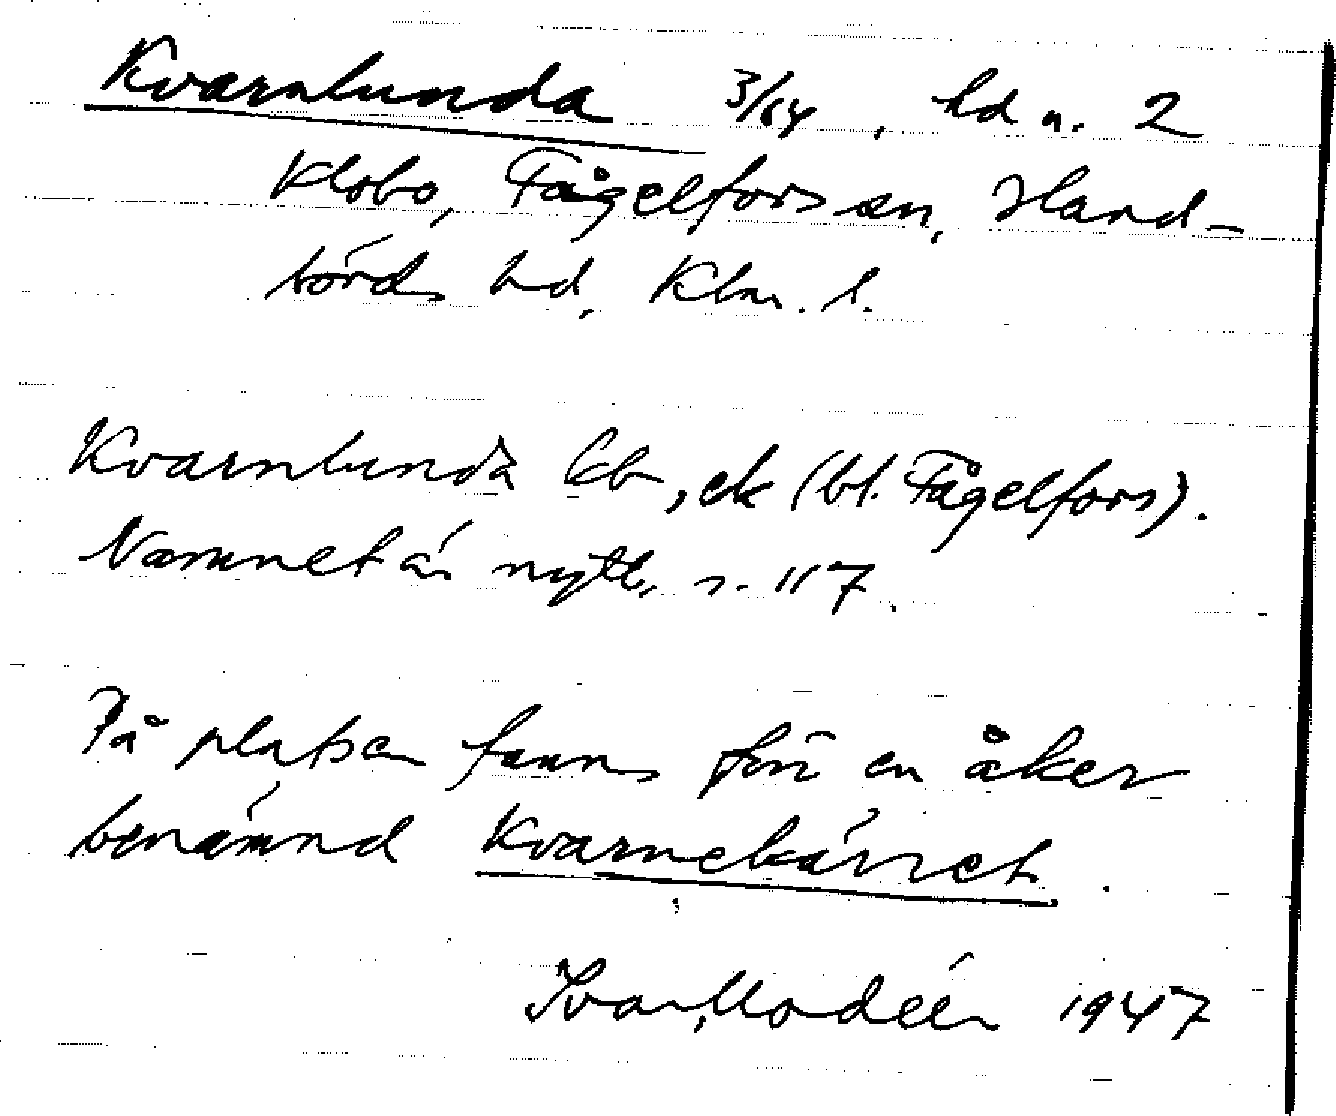 Kvarnlunda 3/64, hd n. 2
Klobo, Fågelfors sn, Hand-
börds hd, Klm. l.
Kvarnlunda lb, ek (bl. Fågelfors).
Namnet är nytt, s. 117.
På platsen fanns förr en åker
benämnd Kvarnekärret.
Ivar Modéer 1947